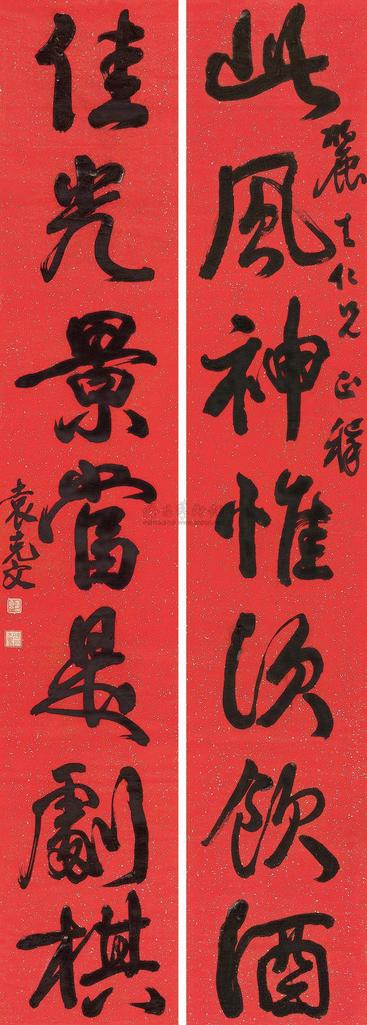 此風神惟須飲酒
麗生仁兄正稱
佳光景當是劇棋
袁克文